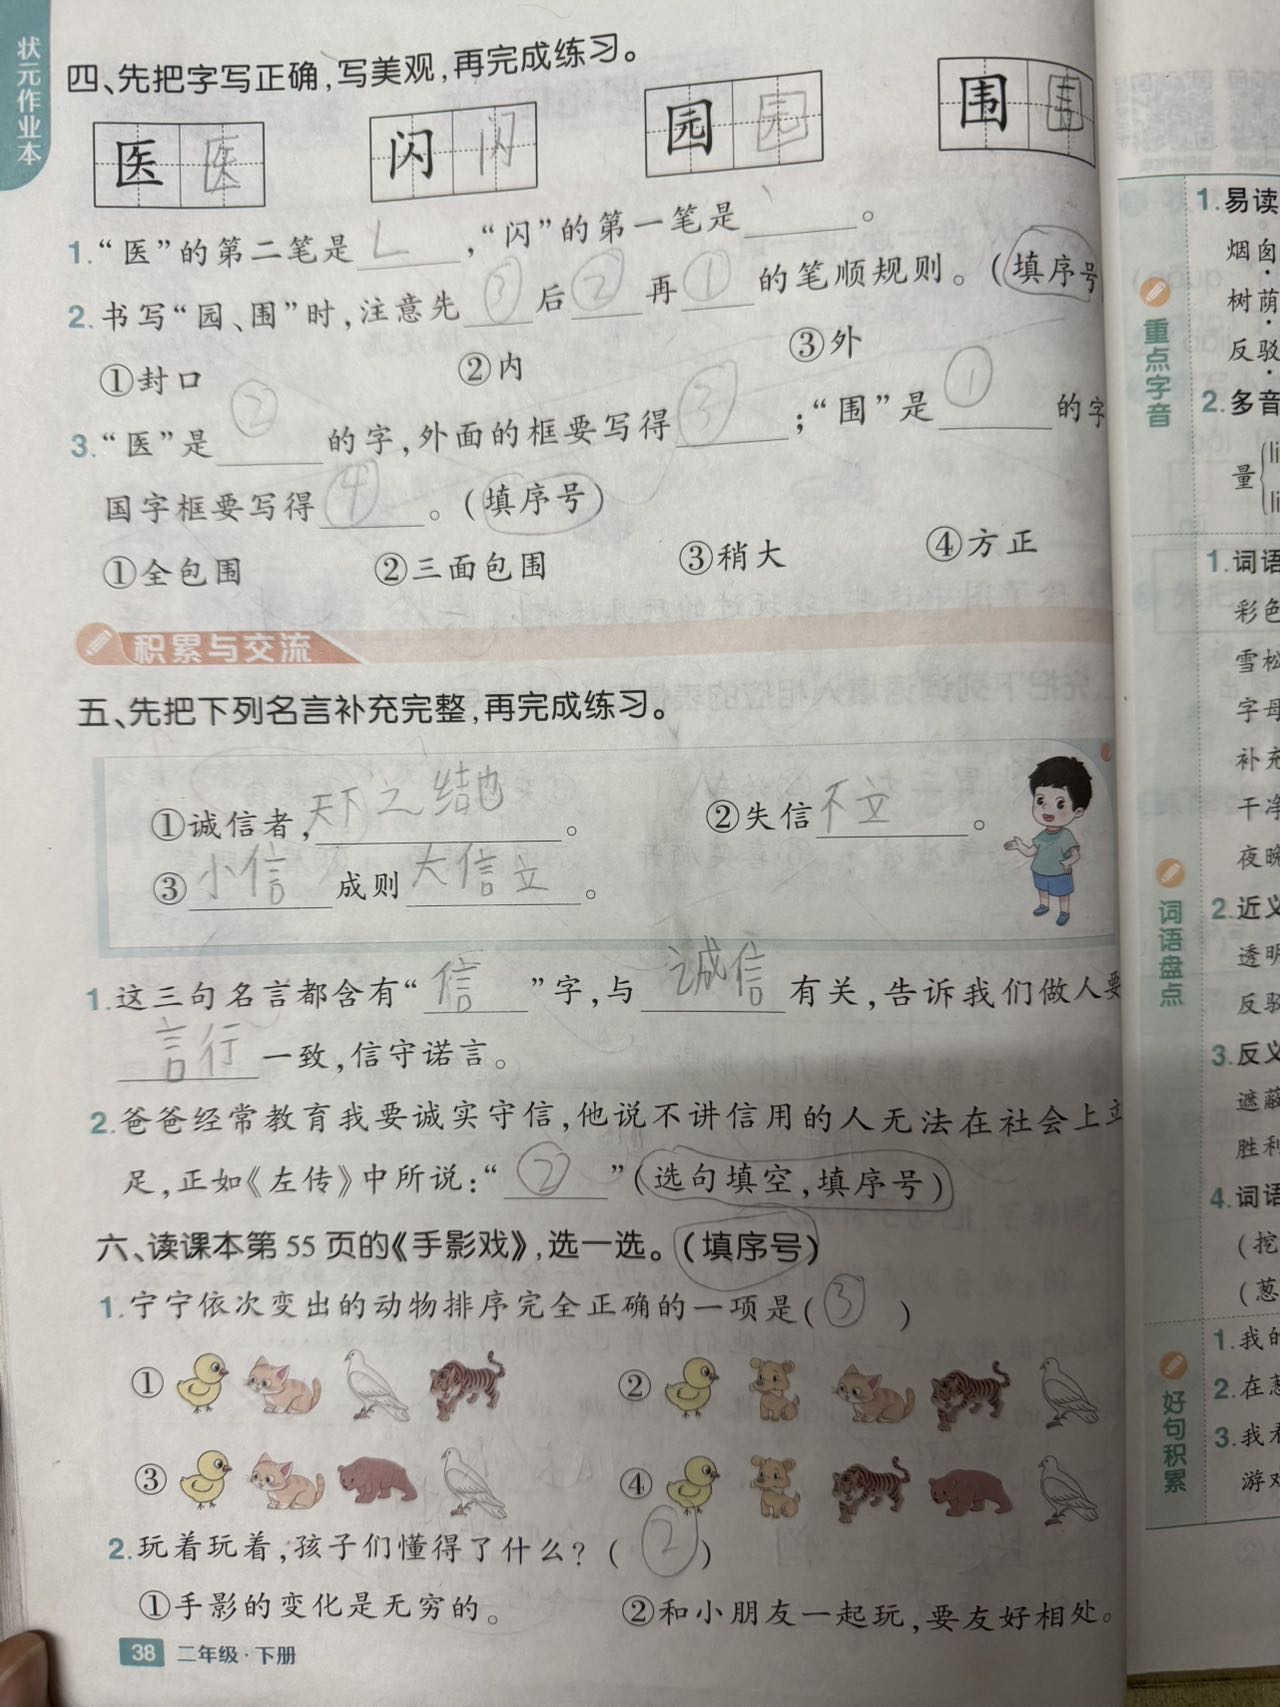 状元作业本
四、先把字写正确,写美观,再完成练习。
医 医 闪 闪 园 园 围 围
1.“医”的第二笔是 ㇄ ,“闪”的第一笔是 丶 。
2.书写“园、围”时,注意先 ③ 后 ② 再 ① 的笔顺规则。(填序号
①封口 ②内 ③外
3.“医”是 ② 的字,外面的框要写得 ③ ;“围”是 ① 的字
国字框要写得 ④ 。(填序号)
①全包围 ②三面包围 ③稍大 ④方正
积累与交流
五、先把下列名言补充完整,再完成练习。
①诚信者,天下之结也。 ②失信不立。
③小信成则大信立。
1.这三句名言都含有“信”字,与诚信有关,告诉我们做人要
言行一致,信守诺言。
2.爸爸经常教育我要诚实守信,他说不讲信用的人无法在社会上立
足,正如《左传》中所说:“②”(选句填空,填序号)
六、读课本第55页的《手影戏》,选一选。(填序号)
1.宁宁依次变出的动物排序完全正确的一项是(③)
① ②
③ ④
2.玩着玩着,孩子们懂得了什么?(②)
①手影的变化是无穷的。 ②和小朋友一起玩,要友好相处。
38 二年级·下册
重点字音
1.易读
烟囱
树荫
反驳
2.多音
量
词语盘点
1.词语
彩色
雪松
字母
补充
干净
夜晚
2.近义
透明
反驳
3.反义
遮蔽
胜利
4.词语
(挖
(葱
好句积累
1.我的
2.在葱
3.我看
游戏